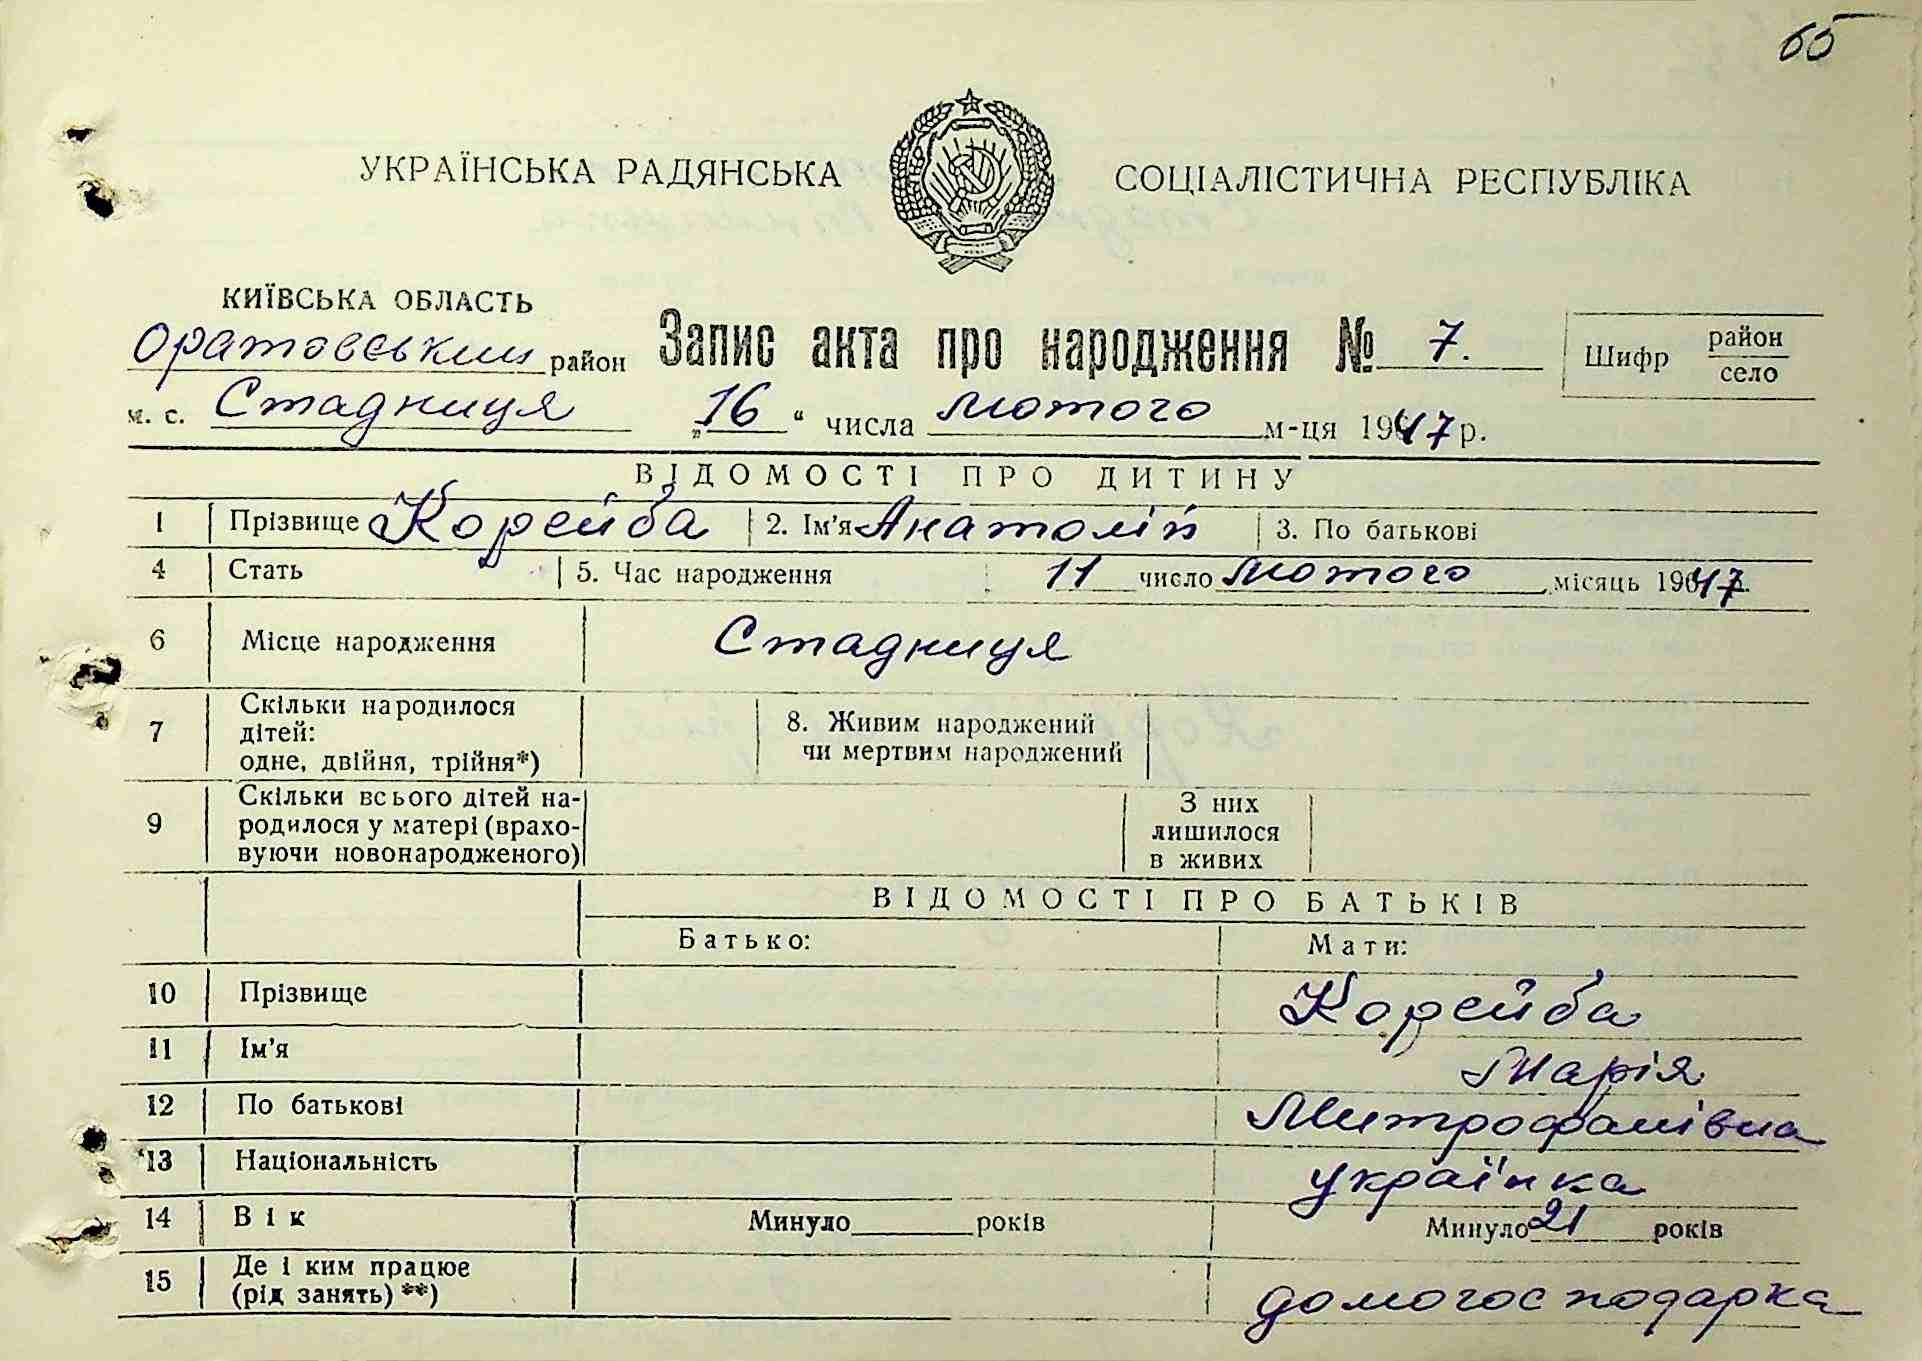 65
УКРАЇНСЬКА РАДЯНСЬКА СОЦІАЛІСТИЧНА РЕСПУБЛІКА
КИЇВСЬКА ОБЛАСТЬ
Оратовський район Запис акта про народження № 7. Шифр район село
м. с. Стадниця „16“ числа лютого м-ця 1947 р.
ВІДОМОСТІ ПРО ДИТИНУ
1 Прізвище Корейба 2. Ім'я Анатолій 3. По батькові
4 Стать 5. Час народження 11 число лютого місяць 1947
6 Місце народження Стадниця
7 Скільки народилося дітей: одне, двійня, трійня*) 8. Живим народжений чи мертвим народжений
9 Скільки всього дітей народилося у матері (враховуючи новонародженого) З них лишилося в живих
ВІДОМОСТІ ПРО БАТЬКІВ
Батько: Мати:
10 Прізвище Корейба
11 Ім'я Марія
12 По батькові Митрофанівна
13 Національність українка
14 Вік Минуло років Минуло 21 років
15 Де і ким працює (рід занять) **) домогосподарка